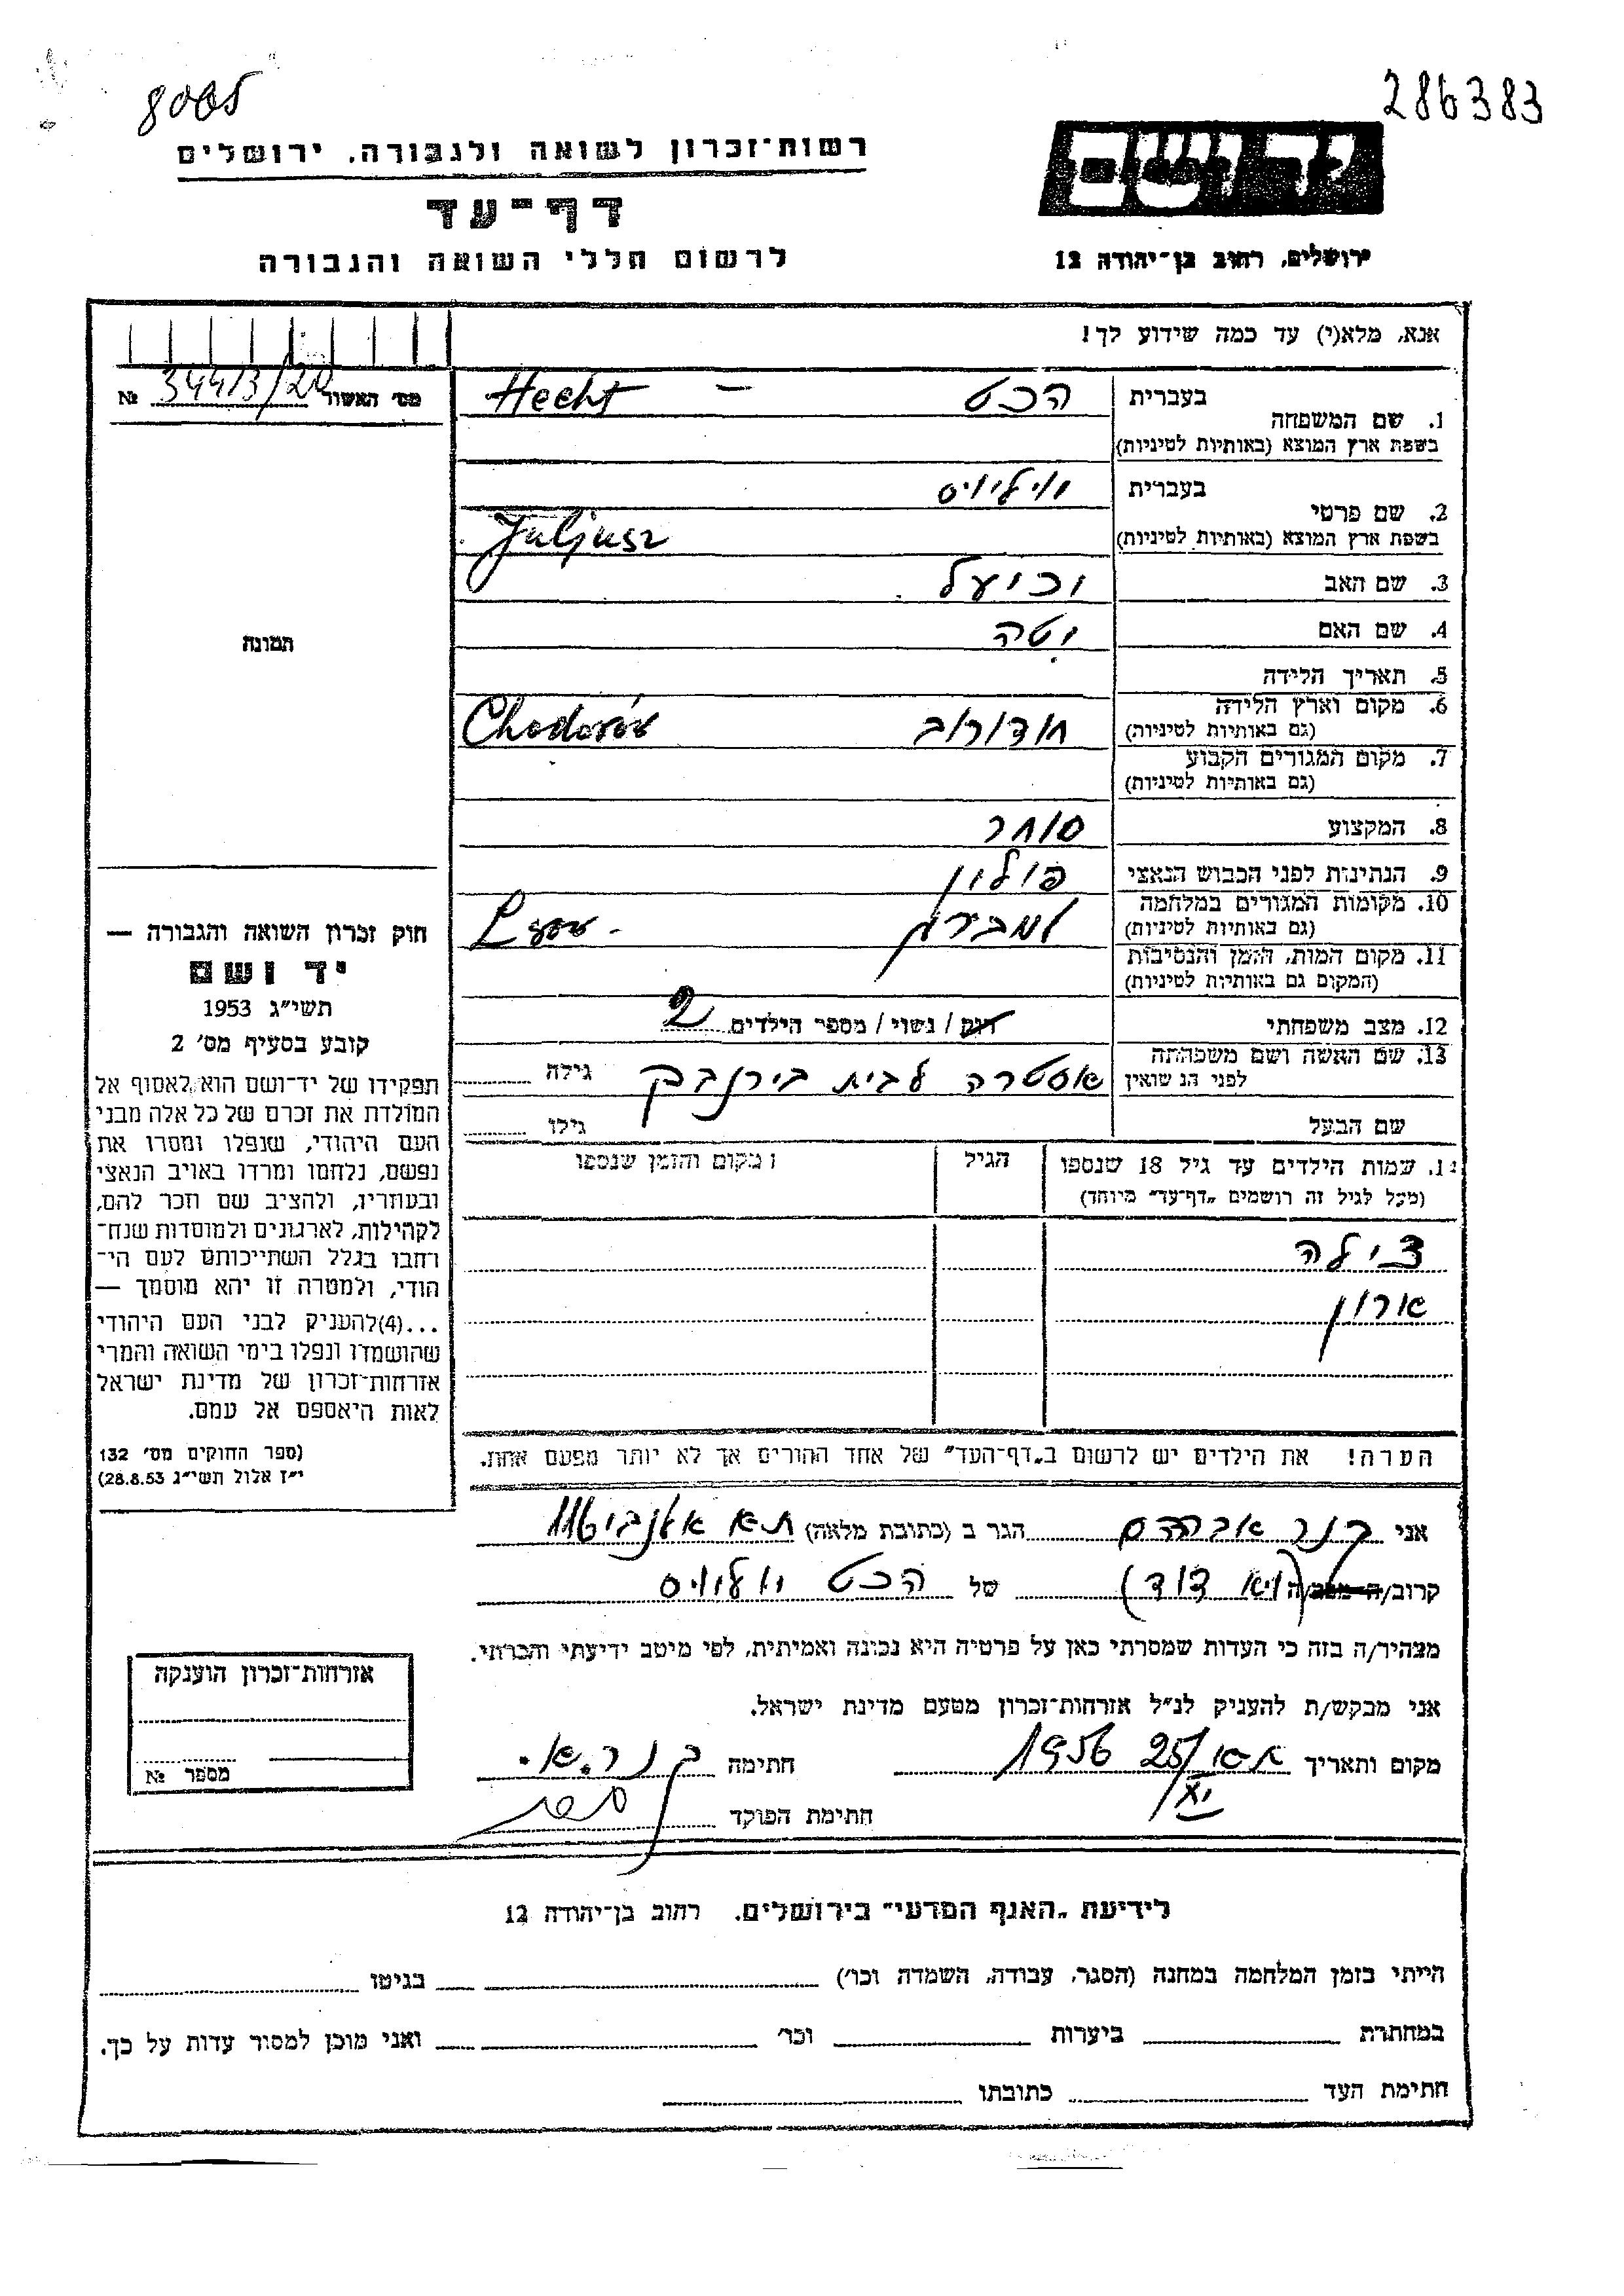 8065
286383
רשות־זכרון לשואה ולגבורה, ירושלים
דף־עד
לרשום חללי השואה והגבורה
יד ושם
ירושלים, רחוב בן־יהודה 12
אנא, מלא(י) עד כמה שידוע לך!
מס׳ האשור 34413/20 №
תמונה
חוק זכרון השואה והגבורה —
יד ושם
תשי״ג 1953
קובע בסעיף מס׳ 2
תפקידו של יד־ושם הוא לאסוף אל
המולדת את זכרם של כל אלה מבני
העם היהודי, שנפלו ומסרו את
נפשם, נלחמו ומרדו באויב הנאצי
ובעוזריו, ולהציב שם וזכר להם,
לקהילות, לארגונים ולמוסדות שנח־
רחבו בגלל השתייכותם לעם הי־
הודי, ולמטרה זו יהא מוסמך —
...(4)להעניק לבני העם היהודי
שהושמדו ונפלו בימי השואה והמרי
אזרחות־זכרון של מדינת ישראל
לאות היאספם אל עמם.
(ספר החוקים מס׳ 132
י״ז אלול תשי״ג 28.8.53)
1. שם המשפחה
בעברית הכט – Hecht
בשפת ארץ המוצא (באותיות לטיניות)
2. שם פרטי
בעברית יוליוס
בשפת ארץ המוצא (באותיות לטיניות) Juljusz
3. שם האב יכיעל
4. שם האם יטה
5. תאריך הלידה
6. מקום וארץ הלידה
(גם באותיות לטיניות) חודורוב Chodorów
7. מקום המגורים הקבוע
(גם באותיות לטיניות)
8. המקצוע סוחר
9. הנתינות לפני הכבוש הנאצי פולין
10. מקומות המגורים במלחמה
(גם באותיות לטיניות) למברג Lwów
11. מקום המות, הזמן והנסיבות
(המקום גם באותיות לטיניות)
12. מצב משפחתי רווק / נשוי / מספר הילדים 2
13. שם האשה ושם משפחתה
לפני הנשואין אסטרה לבית בירנבק גילה
שם הבעל גילו
14. שמות הילדים עד גיל 18 שנספו הגיל מקום והזמן שנספו
(מעל לגיל זה רושמים „דף־עד״ מיוחד)
צילה
ארון
הערה! את הילדים יש לרשום ב„דף־העד״ של אחד ההורים אך לא יותר מפעם אחת.
אני בנר אברהם הגר ב (כתובת מלאה) ת-א אלנבי 116
קרוב/ה (בן דוד) של הכט יוליוס
מצהיר/ה בזה כי העדות שמסרתי כאן על פרטיה היא נכונה ואמיתית, לפי מיטב ידיעתי והכרתי.
אני מבקש/ת להעניק לנ״ל אזרחות־זכרון מטעם מדינת ישראל.
מקום ותאריך 25/XI 1956 חתימה בנר.א.
חתימת הפוקד
אזרחות־זכרון הוענקה
מספר №
לידיעת „האגף המדעי״ בירושלים. רחוב בן־יהודה 12
הייתי בזמן המלחמה במחנה (הסגר, עבודה, השמדה וכו׳) בגיטו
במחתרת ביערות וכו׳ ואני מוכן למסור עדות על כך.
חתימת העד כתובתו